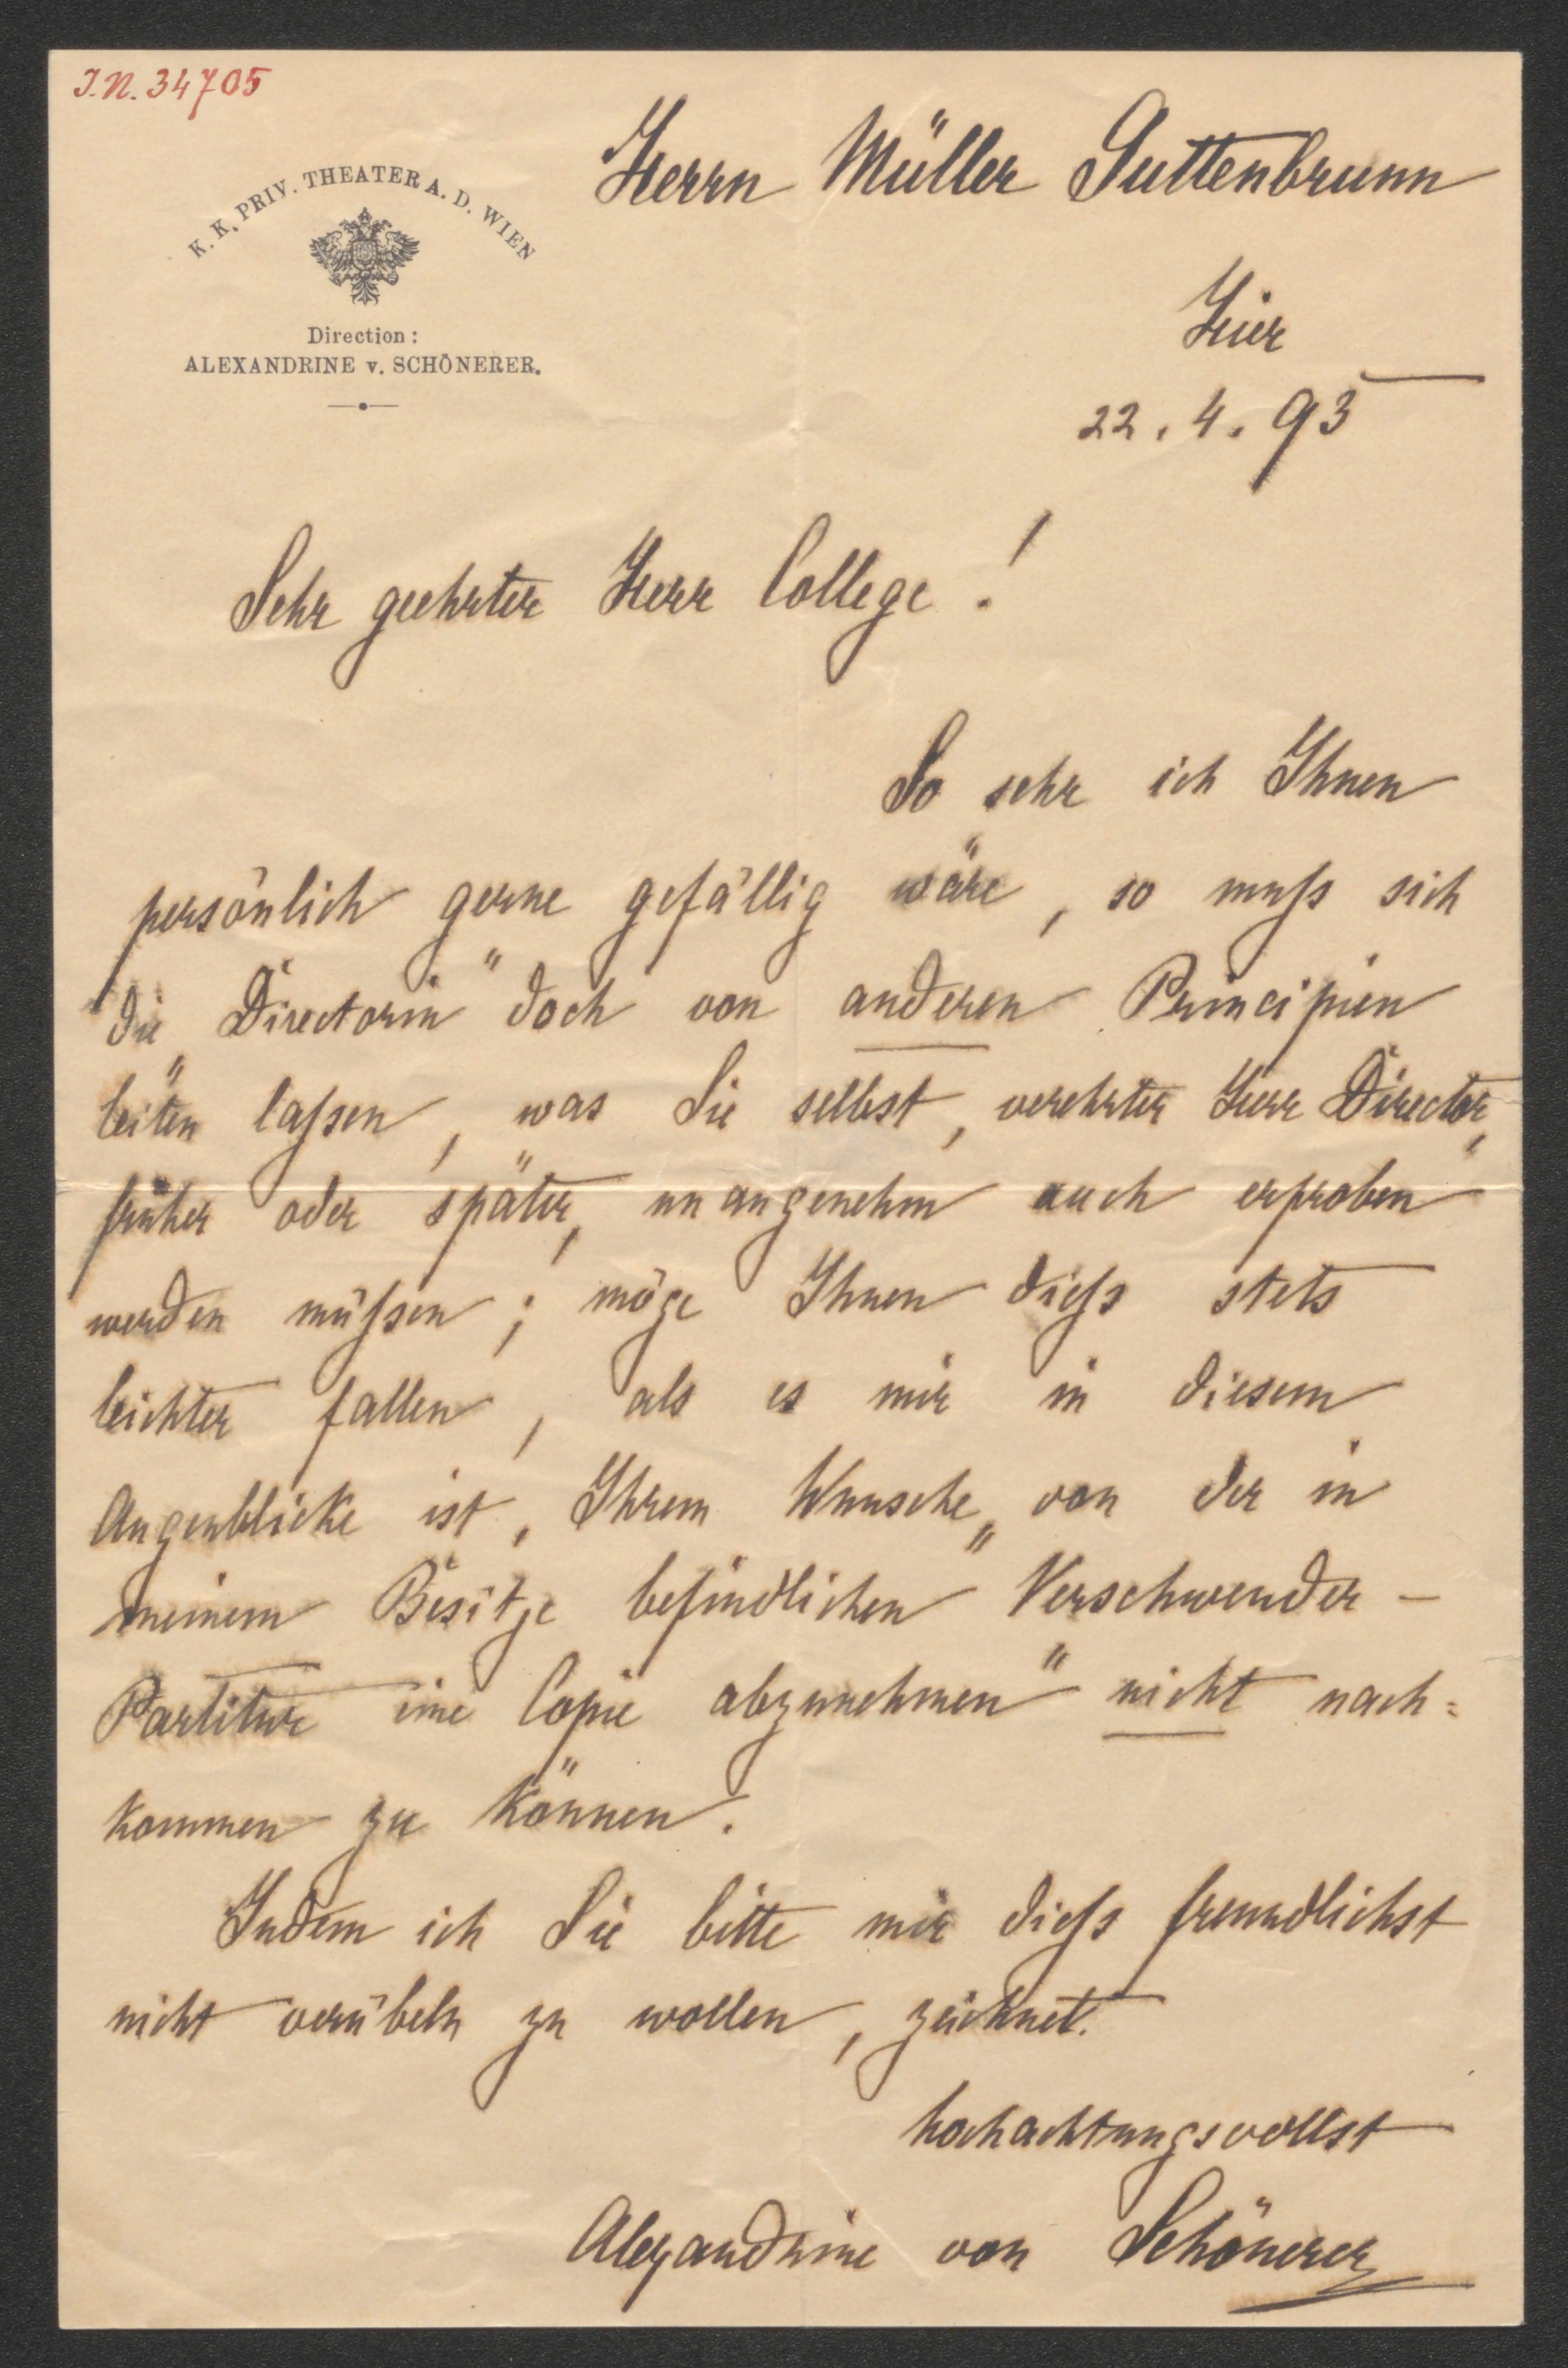 J.N. 34705
K. K. PRIV. THEATER A. D. WIEN
Direction:
ALEXANDRINE v. SCHÖNERER.
Herrn Müller Guttenbrunn
Hier
22. 4. 93
Sehr geehrter Herr College!
So sehr ich Ihnen
persönlich gerne gefällig wäre, so muſs sich
die „Directorin" doch von anderen Principien
leiten laſsen, was Sie selbst, verehrter Herr Director,
früher oder später, „unangenehm auch erproben
werden müſsen; möge Ihnen dieſs stets
leichter fallen, als es mir in diesem
Augenblicke ist, Ihrem Wunsche „von der in
meinem Besitze befindlichen Verschwender –
Partitur eine Copie abzunehmen" nicht nach=
kommen zu können.
Indem ich Sie bitte mir dieſs freundlichst
nicht verübeln zu wollen, zeichnet.
hochachtungsvollst
Alexandrine von Schönerer